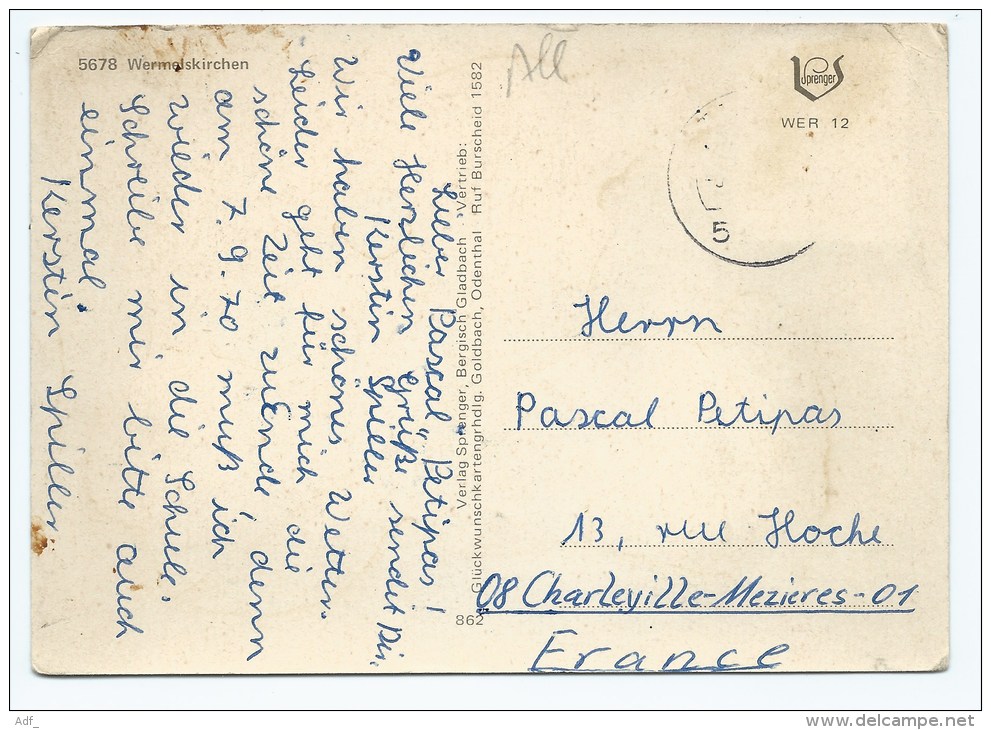 5678 Wermelskirchen
All
Sprenger
WER 12
5
Lieber Pascal Petipas!
Viele Herzlichen Grüße sendet Dir.
Kerstin Spiller
Wir haben schönes Wetter.
Leider geht für mich die
schöne Zeit zuEnde denn
am 7.9.70 muß ich
wieder in die Schule.
Schreibe mir bitte auch
einmal.
Kerstin Spiller
Verlag Sprenger, Bergisch Gladbach · Vertrieb:
Glückwunschkartengrhdlg. Goldbach, Odenthal Ruf Burscheid 1582
862
Herrn
Pascal Petipas
13, rue Hoche
08 Charleville-Mezieres-01
France
Adf_
http://www.delcampe.net